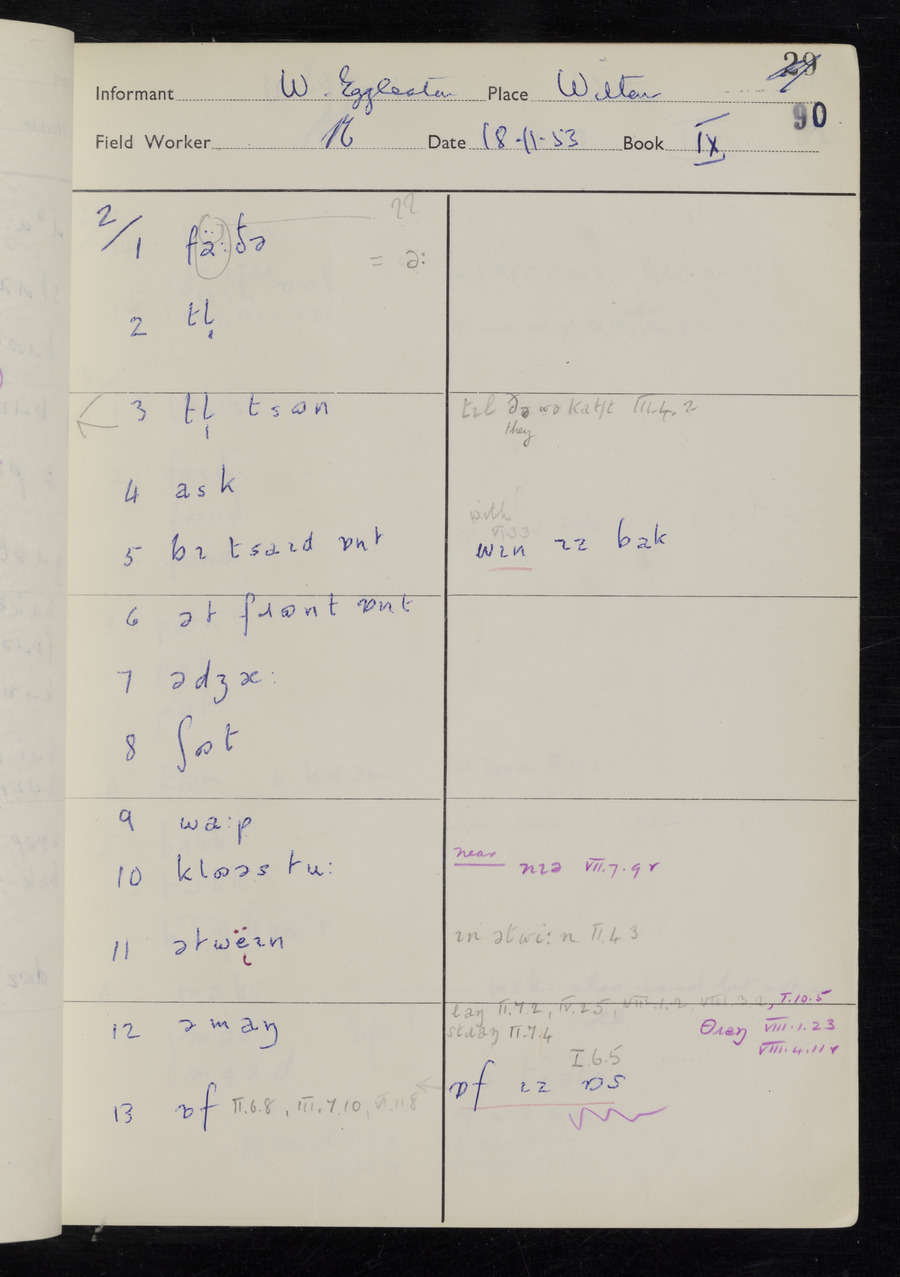 29
Informant W. Eggleston Place Wilton
90
Field Worker Date 18-11-53 Book IX
2/1 fə̈:ðə
= ə:
2 tl̩
3 tl̩ tsɷn
tɪl ðə wə katʃt VII.4.2
they
4 ask
with
VI.33
5 bɪ tsaɪd ɒnt
wɪn ɪz bak
6 ət fɹɷnt ɒnt
7 ədʒæ:
8 ʃɷt
9 wa:p
near
10 klɷəs tu:
nɪə VII.7.9r
11 ətwëɪn
ɪn ətwi:n II.4.3
laŋ II.7.2, IV.2.5, VIII.1.2, VIII.3.2, I.10.5
12 əmaŋ
stɹaŋ II.7.4
θɹaŋ VIII.1.23
VIII.4.11r
I.6.5
13 ɒf II.6.8, III.7.10, VI.11.8
ɒf ɪz ɒs